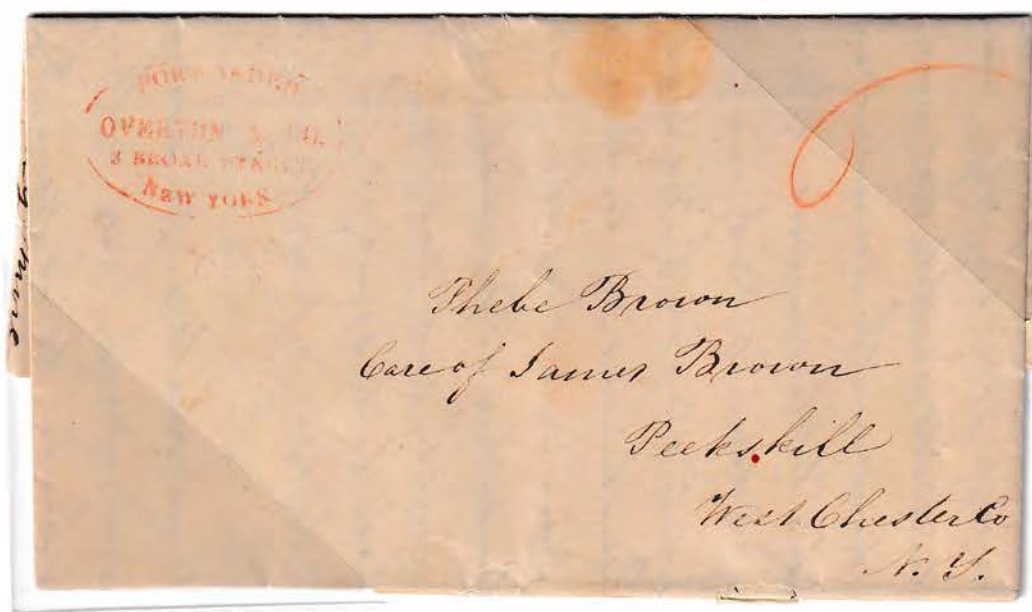 FORWARDED
OVERTON & CO.
3 BROAD STREET
NEW YORK
Phebe Brown
Care of James Brown
Peekskill
West Chester Co
N. Y.